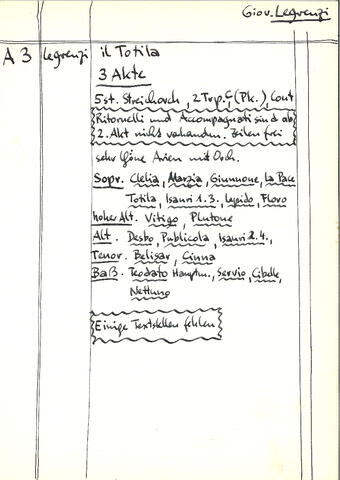 Giov. Legrenzi
A 3 Legrenzi il Totila
3 Akte
5st. Streichorch, 2 Trp. C, (Pk.) Cont
Ritornelli und Accompagnati sind ab
2. Akt nicht vorhanden. Zeilen frei
sehr schöne Arien mit Orch.
Sopr. Clelia, Marzia, Giunnone, la Pace
Totila, Isauri 1.3. Lepido, Floro
hoher Alt. Vitigo, Plutone
Alt. Desbo, Publicola, Isauri 2.4.,
Tenor. Belisar, Cinna
Baß. Teodato Hauptm., Servio, Cibelle,
Nettuno
Einige Textstellen fehlen